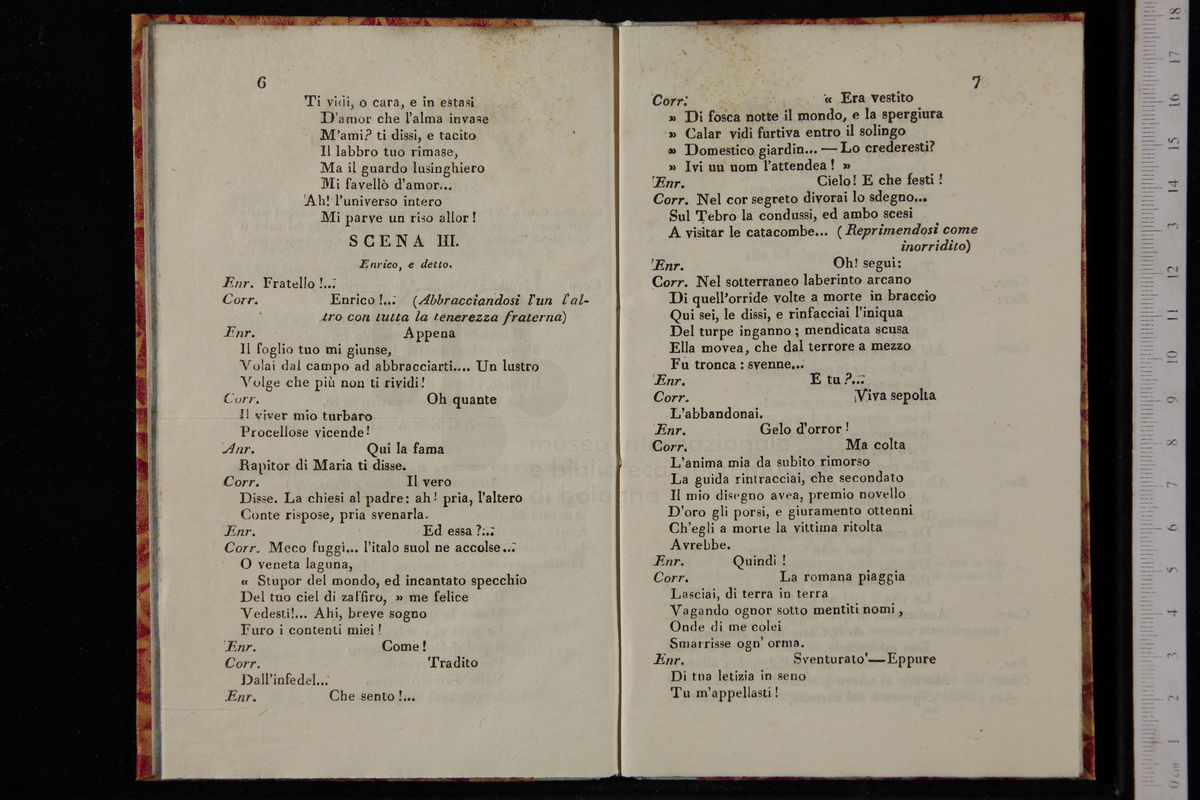 6
Ti vidi, o cara, e in estasi
D'amor che l'alma invase
M'ami? ti dissi, e tacito
Il labbro tuo rimase,
Ma il guardo lusinghiero
Mi favellò d'amor...
Ah! l'universo intero
Mi parve un riso allor!
SCENA III.
Enrico, e detto.
Enr. Fratello!...
Corr. Enrico!... (Abbracciandosi l'un l'al-
tro con tutta la tenerezza fraterna)
Enr. Appena
Il foglio tuo mi giunse,
Volai dal campo ad abbracciarti.... Un lustro
Volge che più non ti rividi!
Corr. Oh quante
Il viver mio turbaro
Procellose vicende!
Anr. Qui la fama
Rapitor di Maria ti disse.
Corr. Il vero
Disse. La chiesi al padre: ah! pria, l'altero
Conte rispose, pria svenarla.
Enr. Ed essa?...
Corr. Meco fuggì... l'italo suol ne accolse...
O veneta laguna,
« Stupor del mondo, ed incantato specchio
Del tuo ciel di zaffiro, » me felice
Vedesti!... Ahi, breve sogno
Furo i contenti miei!
Enr. Come!
Corr. Tradito
Dall'infedel...
Enr. Che sento!...
7
Corr. « Era vestito
» Di fosca notte il mondo, e la spergiura
» Calar vidi furtiva entro il solingo
» Domestico giardin... — Lo crederesti?
» Ivi uu uom l'attendea! »
Enr. Cielo! E che festi!
Corr. Nel cor segreto divorai lo sdegno...
Sul Tebro la condussi, ed ambo scesi
A visitar le catacombe... (Reprimendosi come
inorridito)
Enr. Oh! segui:
Corr. Nel sotterraneo laberinto arcano
Di quell'orride volte a morte in braccio
Qui sei, le dissi, e rinfacciai l'iniqua
Del turpe inganno; mendicata scusa
Ella movea, che dal terrore a mezzo
Fu tronca: svenne...
Enr. E tu?...
Corr. Viva sepolta
L'abbandonai.
Enr. Gelo d'orror!
Corr. Ma colta
L'anima mia da subito rimorso
La guida rintracciai, che secondato
Il mio disegno avea, premio novello
D'oro gli porsi, e giuramento ottenni
Ch'egli a morte la vittima ritolta
Avrebbe.
Enr. Quindi!
Corr. La romana piaggia
Lasciai, di terra in terra
Vagando ognor sotto mentiti nomi,
Onde di me colei
Smarrisse ogn' orma.
Enr. Sventurato'—Eppure
Di tua letizia in seno
Tu m'appellasti!